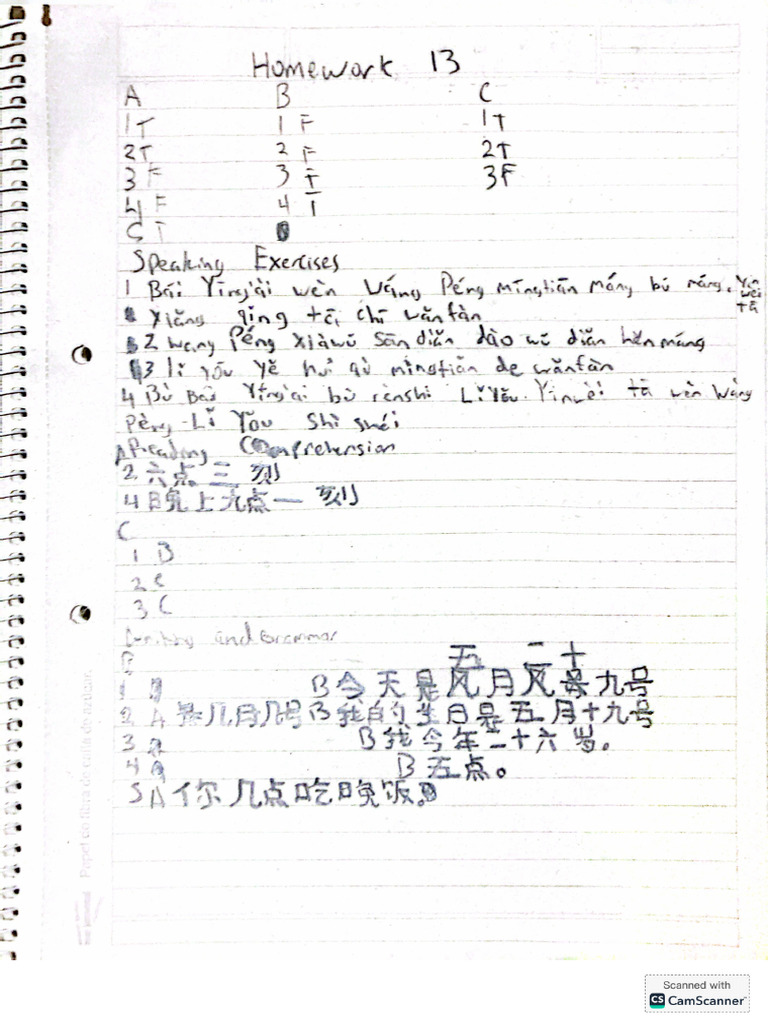 Homework 13
A B C
1T 1 F 1T
2T 2 F 2T
3 F 3 T 3F
4 F 4 T
5 T
Speaking Exercises
1 Bái Yīng'ài wèn Wáng Péng míngtiān máng bú máng. Yīn wèi tā
xiǎng qing tā chī wǎnfàn
2 wang Péng xiàwǔ sān diǎn dào wǔ diǎn hěn máng
3 lǐ yǒu yě huì qù míngtiān de wǎnfàn
4 Bái Yīng'ài bù rènshi Lǐ Yǒu. Yinwèi tā wèn Wáng
Péng Lǐ Yǒu shì shéi
A Reading Comprehension
2 六点三刻
4 晚上九点一刻
C
1 B
2 C
3 C
Writing and Grammar
B 五 二十
1 B 今天是月九号
2 A 是几月几号 B 我的生日是五月十九号
3 B 我今年二十六岁。
4 B 五点。
5 A 你几点吃晚饭。
Papel con fibra de caña de azúcar.
Scanned with
CS CamScanner